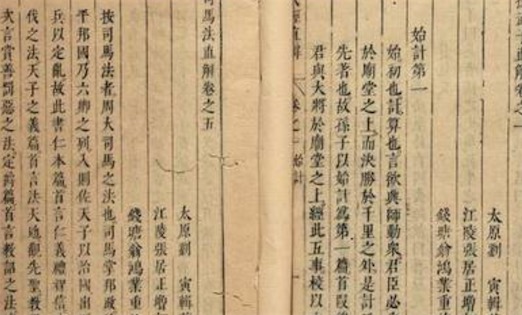 子直解卷之一
太原劉 寅輯
江陵張居正增
錢塘翁鴻業重
始計第一
始初也計算也言欲興師動衆君臣必
於廟堂之上而決勝於千里之外是計
先者也故孫子以始計爲第一篇首叚
君與大將於廟堂之上經此五事校以
直解 卷之一 始計
司馬法直解卷之五
太原劉 寅輯
江陵張居正增
錢塘翁鴻業重
按司馬法者周大司馬之法也司馬掌邦政
平邦國乃六卿之列入則佐天子以治國出
兵以定亂故此書仁本篇首言仁義禮智信
伐之法天子之義篇首言法天地觀先聖教
次言賞善罰惡之法定爵篇首言教詔之法